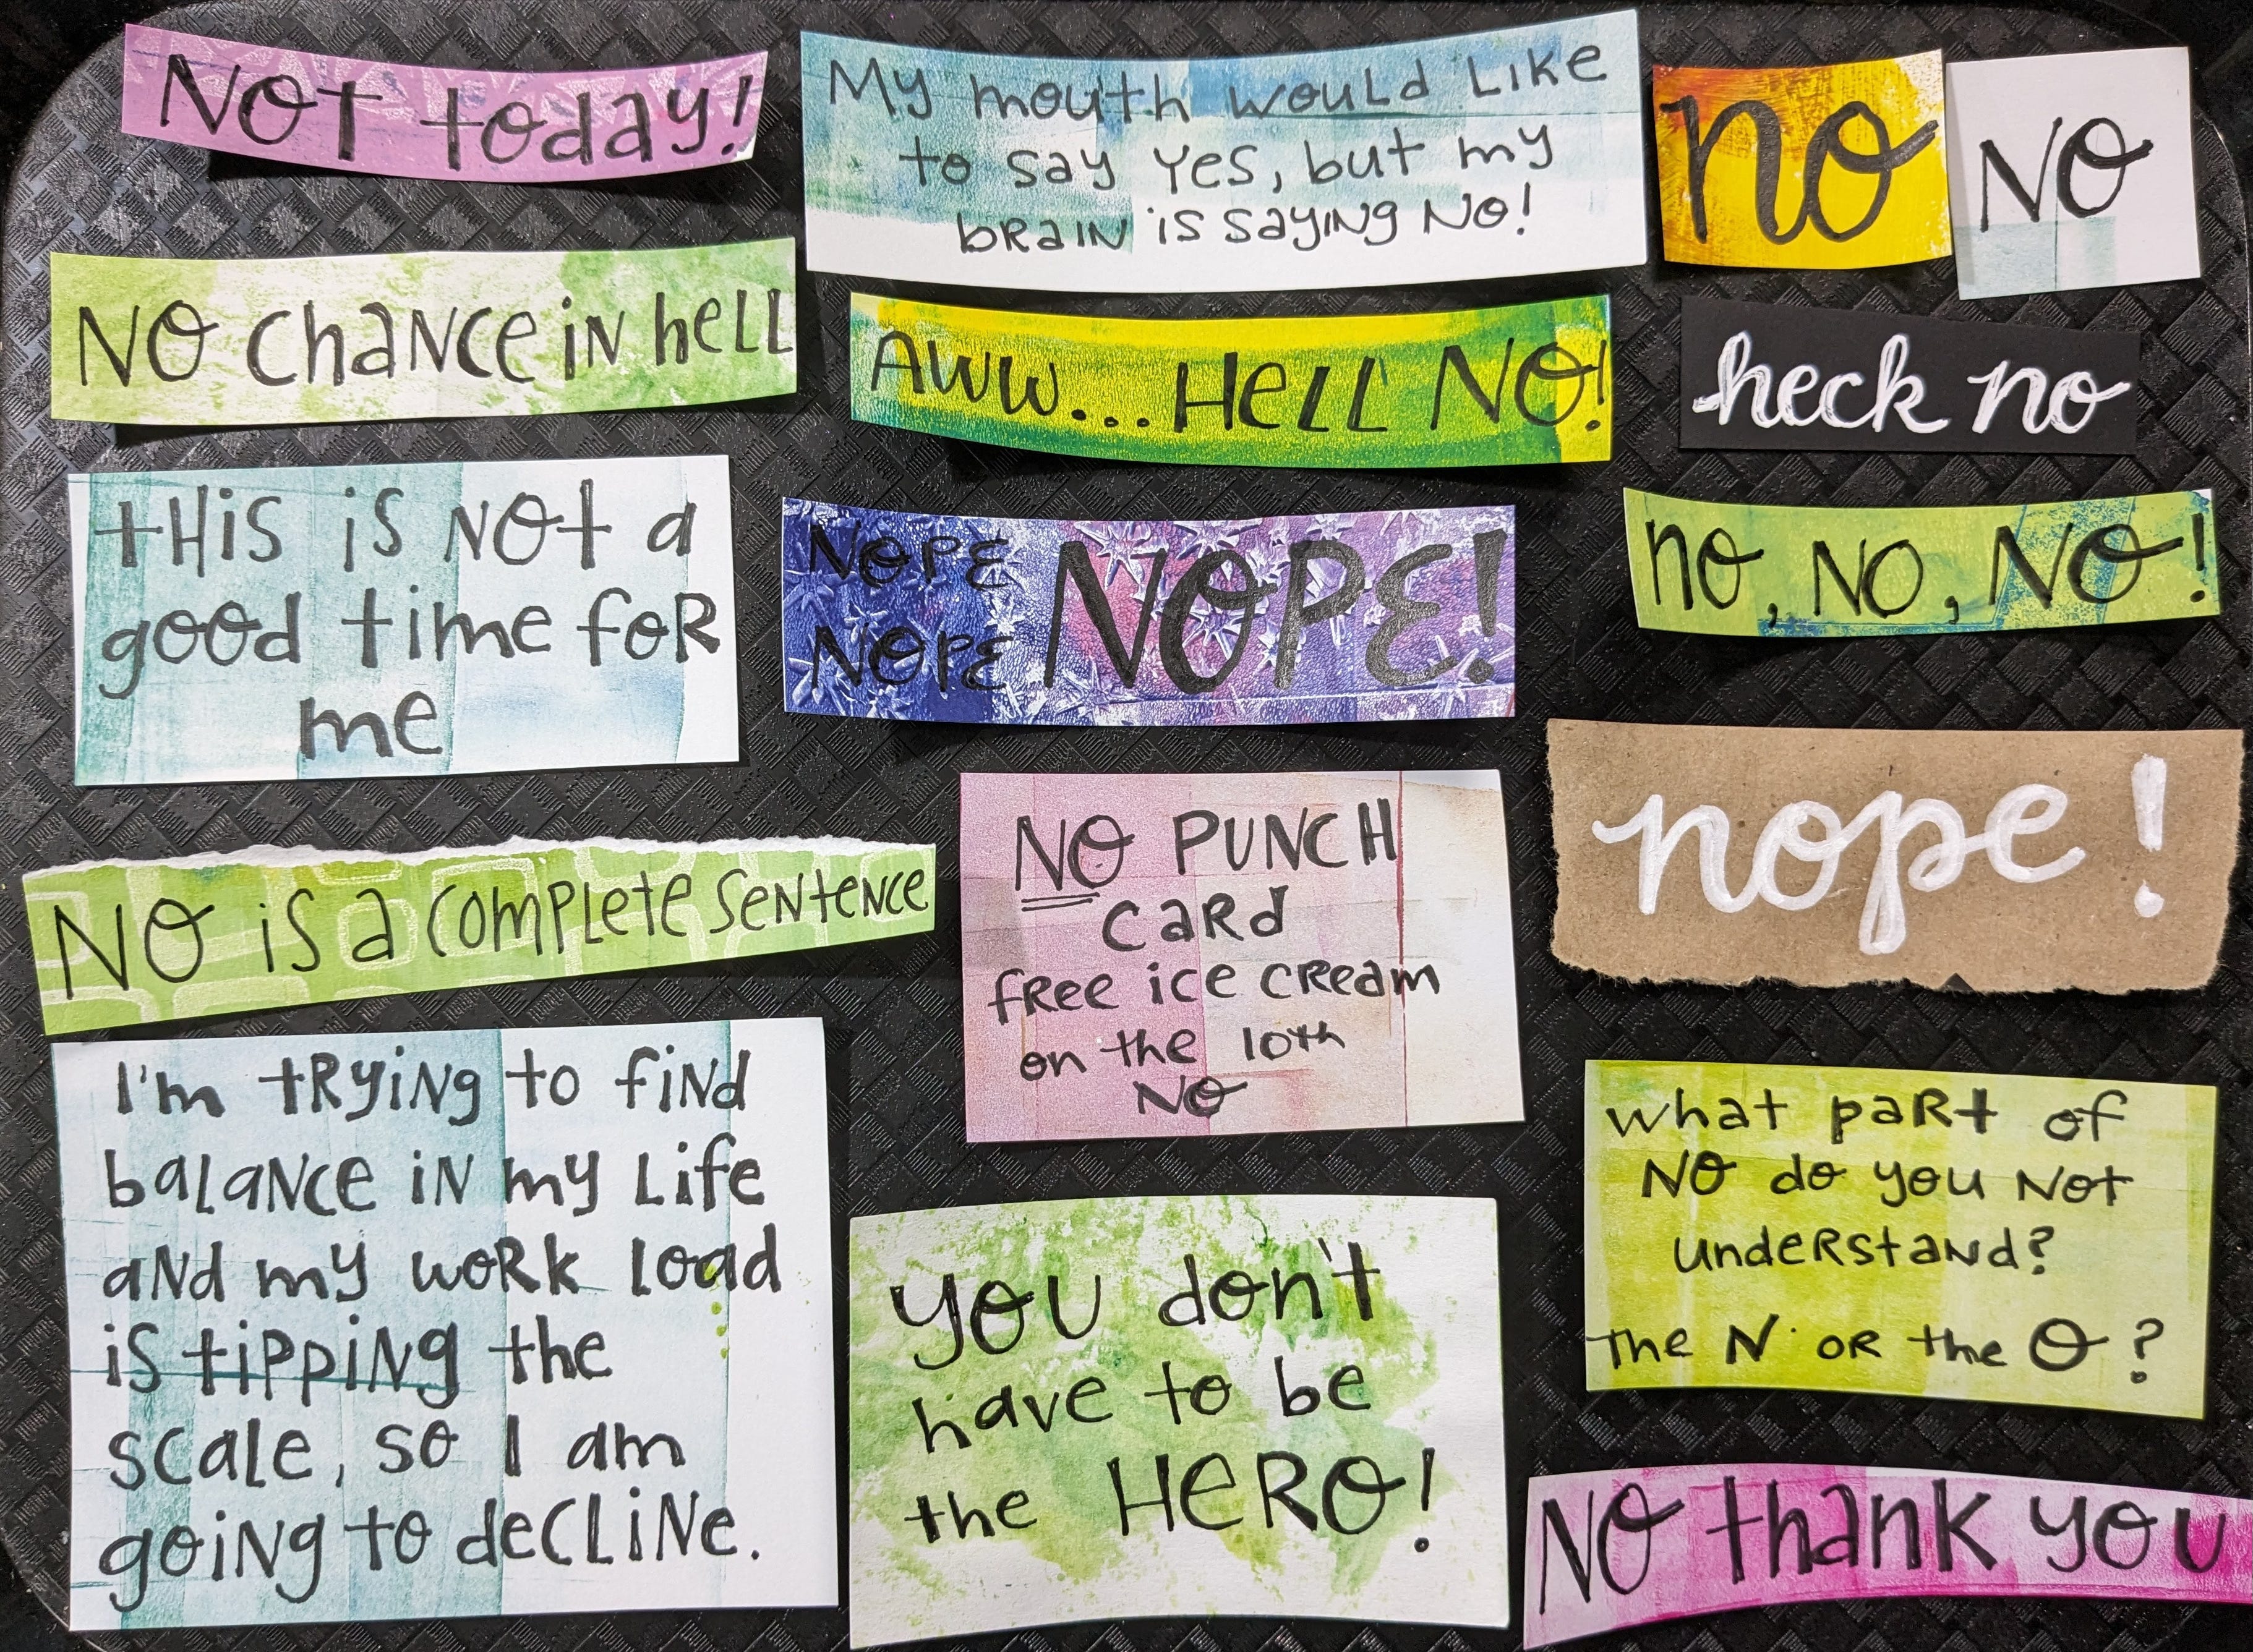 NOT today!
My mouth would Like
to say yes, but my
braiN is sayiNg NO!
no
NO
NO ChaNCe iN heLL
AWW...HeLL NO!
heck no
tHis is NOt a
good time foR
me
NOPE
NOPE
NOPE!
no, NO, NO!
nope!
NO is a complete seNteNce
NO PUNCH
CaRd
fRee ice cReam
on the 10th
NO
I'm tRyiNg to fiNd
balaNce iN my Life
aNd my woRk load
is tippiNg the
scale, so I am
goiNg to decLiNe.
you don't
have to be
the HeRO!
what paRt of
NO do you Not
understaNd?
The N or the O?
NO thank you